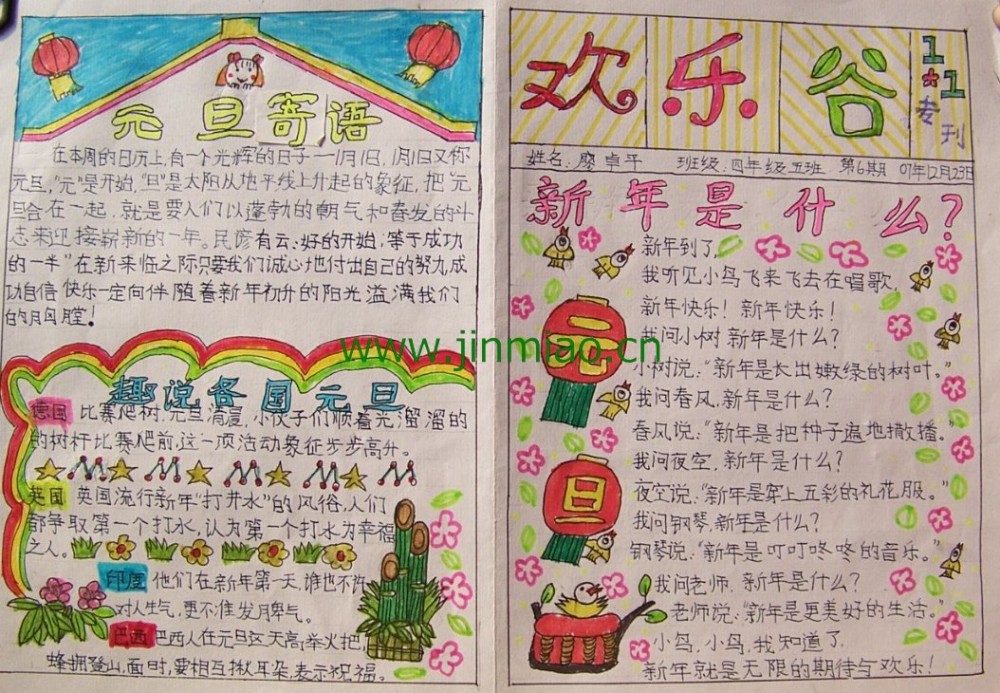 元旦寄语
在本周的日历上,有一个光辉的日子——1月1日,1月1日又称
元旦,"元"是开始,"旦"是太阳从地平线上升起的象征,把"元
旦合在一起,就是要人们以蓬勃的朝气和奋发的斗
志来迎接崭新的一年。民谚有云:好的开始,等于成功
的一半"在新来临之际只要我们诚心地付出自己的努力,成
功自信快乐一定向伴随着新年初升的阳光溢满我们
的胸膛!
趣说各国元旦
德国 比赛爬树,元旦清晨,小伙子们顺着光溜溜的
的树杆比赛爬前,这一项活动象征步步高升。
英国 英国流行新年"打井水"的风俗,人们
都争取第一个打水,认为第一个打水为幸福
之人。
印度 他们在新年第一天,谁也不许
对人生气,更不准发脾气。
巴西 巴西人在元旦这天高举火把,
蜂拥登山,面时,要相互揪耳朵,表示祝福。
欢乐谷
1★1
专刊
姓名:廖卓平 班级:四年级五班 第6期 07年12月23日
新年是什么?
新年到了,
我听见小鸟飞来飞去在唱歌,
新年快乐!新年快乐!
我问小树,新年是什么?
小树说:"新年是长出嫩绿的树叶。"
我问春风,新年是什么?
春风说:"新年是把种子遍地撒播。"
我问夜空,新年是什么?
夜空说:"新年是穿上五彩的礼花服。"
我问钢琴,新年是什么?
钢琴说:"新年是叮叮咚咚的音乐。"
我问老师,新年是什么?
老师说:"新年是更美好的生活。"
小鸟,小鸟,我知道了,
新年就是无限的期待与欢乐!
元
旦
www.jinmiao.cn